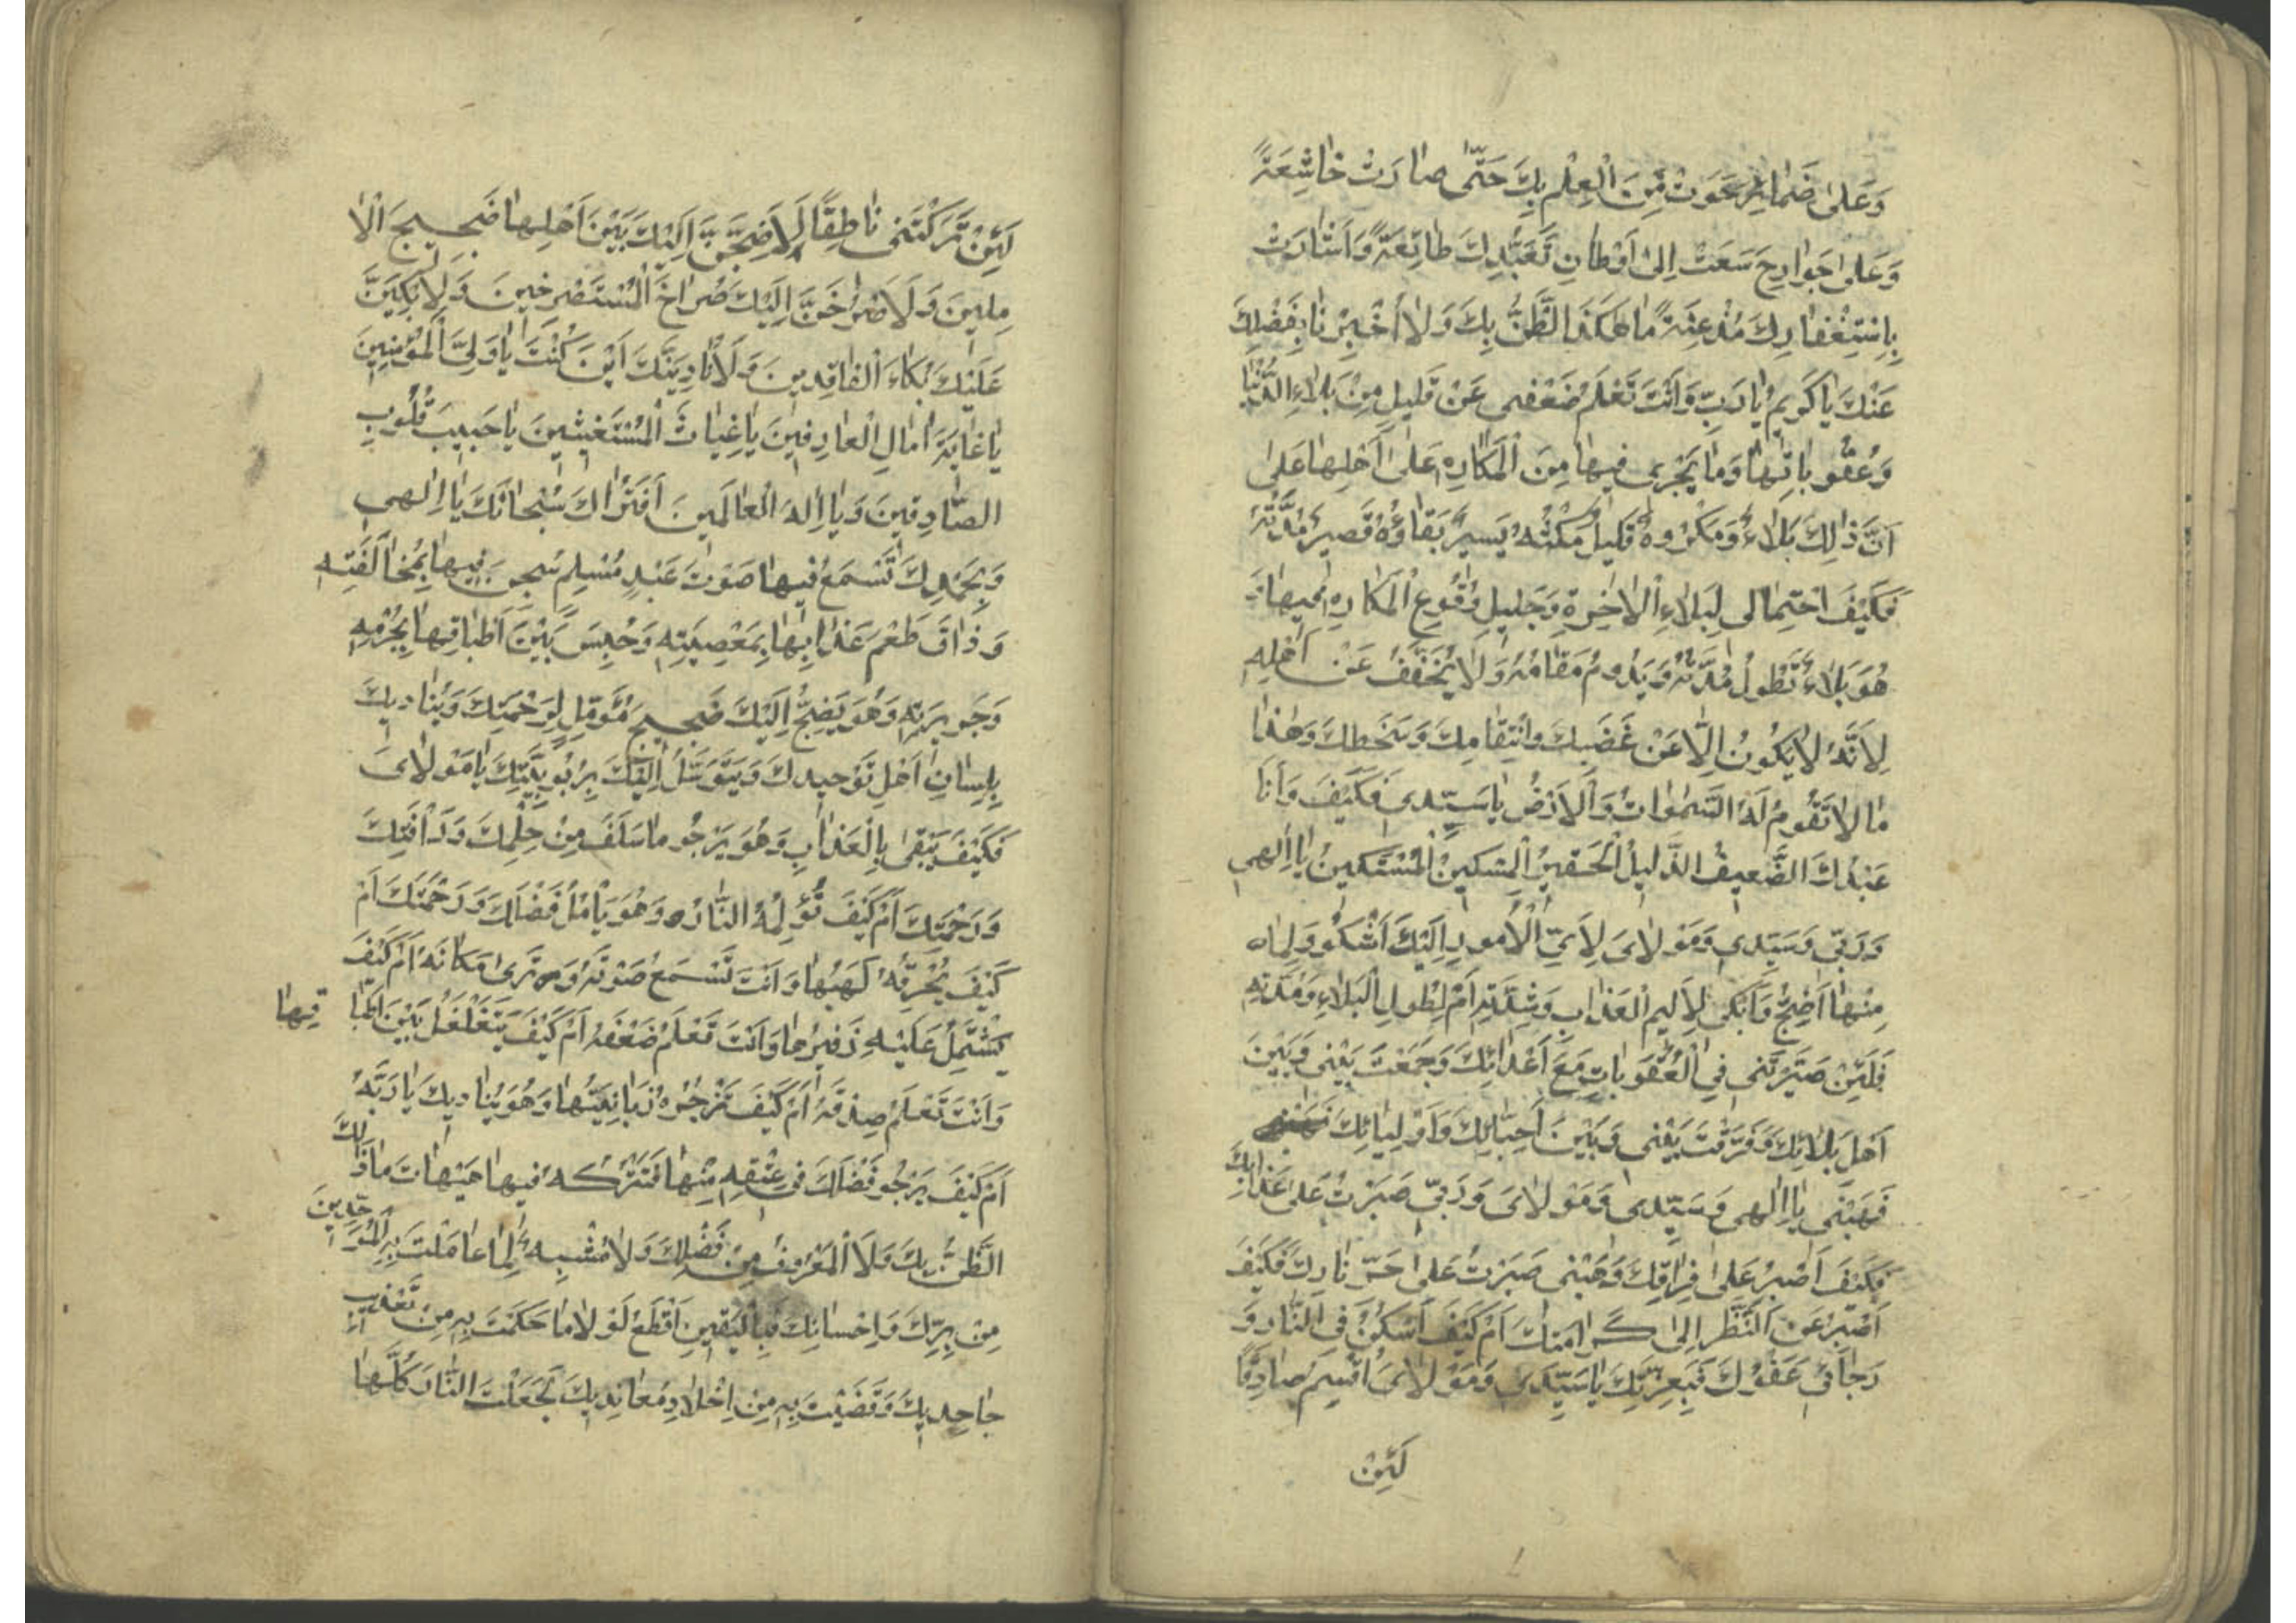 وَعَلىٰ ضَمٰائِرَ حَوَتْ مِنَ الْعِلْمِ بِكَ حَتّٰى صٰارَتْ خٰاشِعَةً
وَعَلىٰ جَوٰارِحَ سَعَتْ اِلىٰ اَوْطٰانِ تَعَبُّدِكَ طٰائِعَةً وَاَشٰارَتْ
بِاِسْتِغْفٰارِكَ مُذْعِنَةً مٰا هٰكَذَا الظَّنُّ بِكَ وَلاٰ اُخْبِرْنٰا بِفَضْلِكَ
عَنْكَ يٰا كَرِيمُ يٰا رَبِّ وَاَنْتَ تَعْلَمُ ضَعْفى عَنْ قَليلٍ مِنْ بَلاٰءِ الدُّنْيٰا
وَعُقُوبٰاتِهٰا وَمٰا يَجْرى فيهٰا مِنَ الْمَكٰارِهِ عَلىٰ اَهْلِهٰا عَلىٰ
اَنَّ ذٰلِكَ بَلاٰءٌ وَمَكْرُوهٌ قَليلٌ مَكْثُهُ يَسيرٌ بَقٰاؤُهُ قَصيرٌ مُدَّتُهُ
فَكَيْفَ احْتِمٰالى لِبَلاٰءِ الْاٰخِرَةِ وَجَليلِ وُقُوعِ الْمَكٰارِهِ فيهٰا وَ
هُوَ بَلاٰءٌ تَطُولُ مُدَّتُهُ وَيَدُومُ مَقٰامُهُ وَلاٰ يُخَفَّفُ عَنْ اَهْلِهِ
لِاَنَّهُ لاٰ يَكُونُ اِلّٰا عَنْ غَضَبِكَ وَانْتِقٰامِكَ وَسَخَطِكَ وَهٰذٰا
مٰا لاٰ تَقُومُ لَهُ السَّمٰوٰاتُ وَالْاَرْضُ يٰا سَيِّدى فَكَيْفَ وَاَنَا
عَبْدُكَ الضَّعيفُ الذَّليلُ الْحَقيرُ الْمِسْكينُ الْمُسْتَكينُ يٰا اِلٰهى
وَرَبّى وَسَيِّدى وَمَوْلاٰىَ لِاَىِّ الْاُمُورِ اِلَيْكَ اَشْكُو وَلِمٰا
مِنْهٰا اَضِجُّ وَاَبْكى لِاَليمِ الْعَذٰابِ وَشِدَّتِهِ اَمْ لِطُولِ الْبَلاٰءِ وَمُدَّتِهِ
فَلَئِنْ صَيَّرْتَنى فِى الْعُقُوبٰاتِ مَعَ اَعْدٰائِكَ وَجَمَعْتَ بَيْنى وَبَيْنَ
اَهْلِ بَلاٰئِكَ وَفَرَّقْتَ بَيْنى وَبَيْنَ اَحِبّٰائِكَ وَاَوْلِيٰائِكَ
فَهَبْنى يٰا اِلٰهى وَسَيِّدى وَمَوْلاٰىَ وَرَبّى صَبَرْتُ عَلىٰ عَذٰابِكَ
فَكَيْفَ اَصْبِرُ عَلىٰ فِرٰاقِكَ وَهَبْنى صَبَرْتُ عَلىٰ حَرِّ نٰارِكَ فَكَيْفَ
اَصْبِرُ عَنِ النَّظَرِ اِلىٰ كَرٰامَتِكَ اَمْ كَيْفَ اَسْكُنُ فِى النّٰارِ وَ
رَجٰائى عَفْوُكَ فَبِعِزَّتِكَ يٰا سَيِّدى وَمَوْلاٰىَ اُقْسِمُ صٰادِقًا
لَئِنْ
لَئِنْ تَرَكْتَنى نٰاطِقًا لَاَضِجَّنَّ اِلَيْكَ بَيْنَ اَهْلِهٰا ضَجيجَ الْاٰ
مِلينَ وَلَاَصْرُخَنَّ اِلَيْكَ صُرٰاخَ الْمُسْتَصْرِخينَ وَلَاَبْكِيَنَّ
عَلَيْكَ بُكٰاءَ الْفٰاقِدينَ وَلَاُنٰادِيَنَّكَ اَيْنَ كُنْتَ يٰا وَلِىَّ الْمُؤْمِنينَ
يٰا غٰايَةَ اٰمٰالِ الْعٰارِفينَ يٰا غِيٰاثَ الْمُسْتَغيثينَ يٰا حَبيبَ قُلُوبِ
الصّٰادِقينَ وَيٰا اِلٰهَ الْعٰالَمينَ اَفَتُرٰاكَ سُبْحٰانَكَ يٰا اِلٰهى
وَبِحَمْدِكَ تَسْمَعُ فيهٰا صَوْتَ عَبْدٍ مُسْلِمٍ سُجِنَ فيهٰا بِمُخٰالَفَتِهِ
وَذٰاقَ طَعْمَ عَذٰابِهٰا بِمَعْصِيَتِهِ وَحُبِسَ بَيْنَ اَطْبٰاقِهٰا بِجُرْمِهِ
وَجَريرَتِهِ وَهُوَ يَضِجُّ اِلَيْكَ ضَجيجَ مُؤَمِّلٍ لِرَحْمَتِكَ وَيُنٰاديكَ
بِلِسٰانِ اَهْلِ تَوْحيدِكَ وَيَتَوَسَّلُ اِلَيْكَ بِرُبُوبِيَّتِكَ يٰا مَوْلاٰىَ
فَكَيْفَ يَبْقىٰ بِالْعَذٰابِ وَهُوَ يَرْجُو مٰا سَلَفَ مِنْ حِلْمِكَ وَرَأْفَتِكَ
وَرَحْمَتِكَ اَمْ كَيْفَ تُؤْلِمُهُ النّٰارُ وَهُوَ يَأْمُلُ فَضْلَكَ وَرَحْمَتَكَ اَمْ
كَيْفَ يُحْرِقُهُ لَهَبُهٰا وَاَنْتَ تَسْمَعُ صَوْتَهُ وَتَرىٰ مَكٰانَهُ اَمْ كَيْفَ
يَشْتَمِلُ عَلَيْهِ زَفيرُهٰا وَاَنْتَ تَعْلَمُ ضَعْفَهُ اَمْ كَيْفَ يَتَغَلْغَلُ بَيْنَ اَطْبٰا قِهٰا
وَاَنْتَ تَعْلَمُ صِدْقَهُ اَمْ كَيْفَ تَزْجُرُهُ زَبٰانِيَتُهٰا وَهُوَ يُنٰاديكَ يٰا رَبَّهُ
اَمْ كَيْفَ يَرْجُو فَضْلَكَ فى عِتْقِهِ مِنْهٰا فَتَتْرُكُهُ فيهٰا هَيْهٰاتَ مٰا ذٰلِكَ
الظَّنُّ بِكَ وَلَا الْمَعْرُوفُ مِنْ فَضْلِكَ وَلاٰ مُشْبِهٌ لِمٰا عٰامَلْتَ بِهِ الْمُوَحِّدينَ
مِنْ بِرِّكَ وَاِحْسٰانِكَ فَبِالْيَقينِ اَقْطَعُ لَوْ لاٰ مٰا حَكَمْتَ بِهِ مِنْ تَعْذيبِ
جٰاحِديكَ وَقَضَيْتَ بِهِ مِنْ اِخْلاٰدِ مُعٰانِديكَ لَجَعَلْتَ النّٰارَ كُلَّهٰا